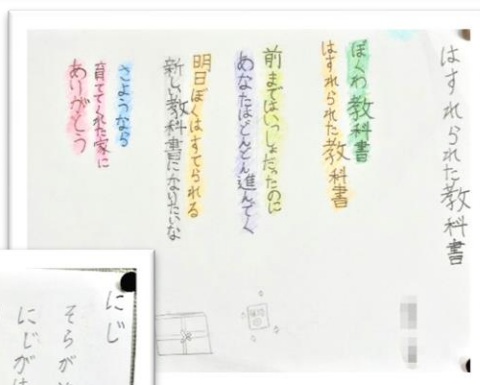 はすれられた教科書
ぼくわ教科書
はすれられた教科書
前まではいっしょだったのに
あなたはどんどん進んでく
明日ぼくはすてられる
新しい教科書になりたいな
さようなら
育ててくれた家に
ありがとう
にじ
そらが
にじがは